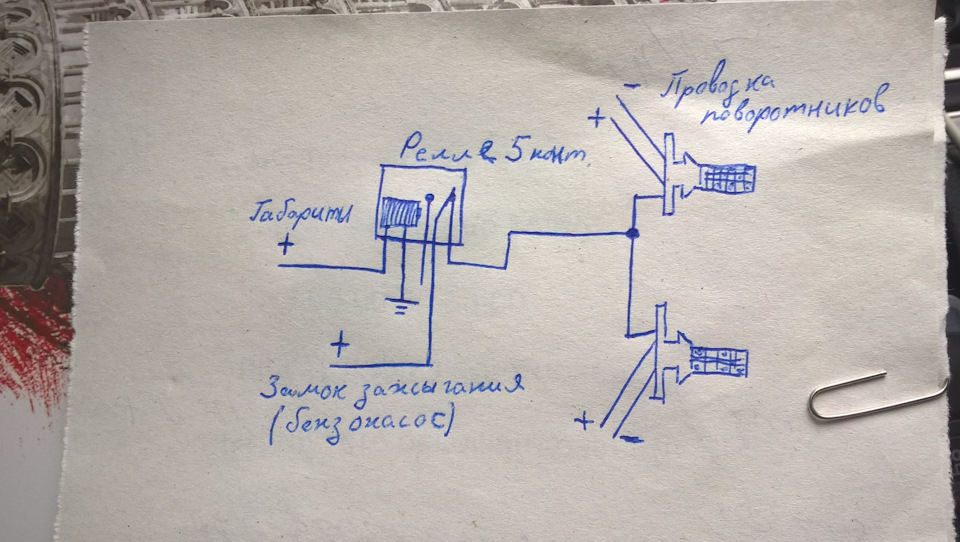 Проводка
поворотников
Релле 5 конт.
Габариты
+
+
Замок зажыгания
(бензонасос)
+
−
+
−